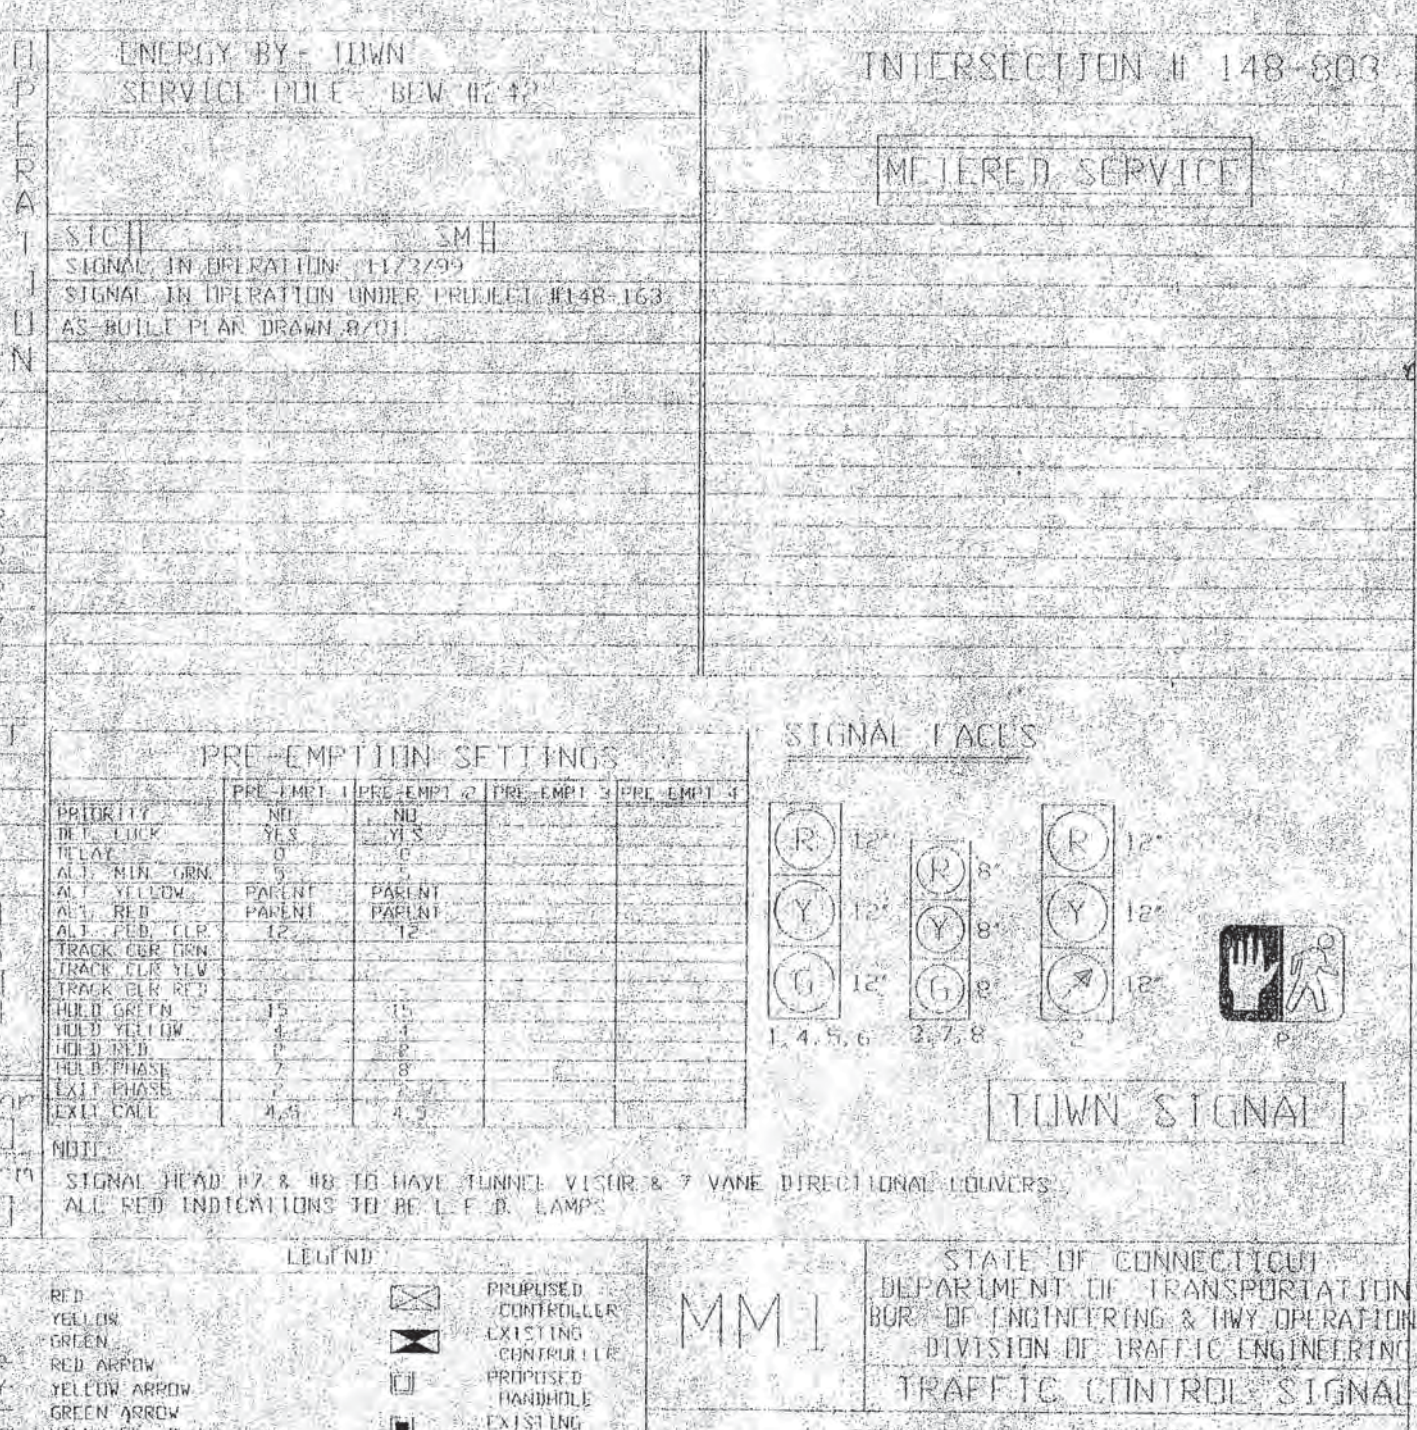 OPERATION
ENERGY BY - TOWN
SERVICE POLE - BCW #242
STC# SM#
SIGNAL IN OPERATION: 11/3/99
SIGNAL IN OPERATION UNDER PROJECT #148-163
AS-BUILT PLAN DRAWN 8/01
INTERSECTION # 148-803
METERED SERVICE
PRE-EMPTION SETTINGS
PRE-EMPT 1 PRE-EMPT 2 PRE-EMPT 3 PRE-EMPT 4
PRIORITY NO NO
DET. LOCK YES YES
DELAY 0 0
ALT. MIN. GRN. 5 5
ALT. YELLOW PARENT PARENT
ALT. RED PARENT PARENT
ALT. PED. CLR. 12 12
TRACK CLR GRN
TRACK CLR YEW
TRACK CLR RED - -
HOLD GREEN 15 15
HOLD YELLOW 4 4
HOLD RED 2 2
HOLD PHASE 7 8
EXIT PHASE 2 2
EXIT CALL 4,5 4,5
SIGNAL FACES
R 12"
Y 12"
G 12"
1, 4, 5, 6
R 8"
Y 8"
G 8"
3, 7, 8
R 12"
Y 12"
12"
2
P
TOWN SIGNAL
NOTE:
SIGNAL HEAD #7 & #8 TO HAVE TUNNEL VISOR & 7 VANE DIRECTIONAL LOUVERS
ALL RED INDICATIONS TO BE L.E.D. LAMPS
LEGEND
RED
YELLOW
GREEN
RED ARROW
YELLOW ARROW
GREEN ARROW
PROPOSED
CONTROLLER
EXISTING
CONTROLLER
PROPOSED
HANDHOLE
EXISTING
MMI
STATE OF CONNECTICUT
DEPARTMENT OF TRANSPORTATION
BUR. OF ENGINEERING & HWY OPERATION
DIVISION OF TRAFFIC ENGINEERING
TRAFFIC CONTROL SIGNAL